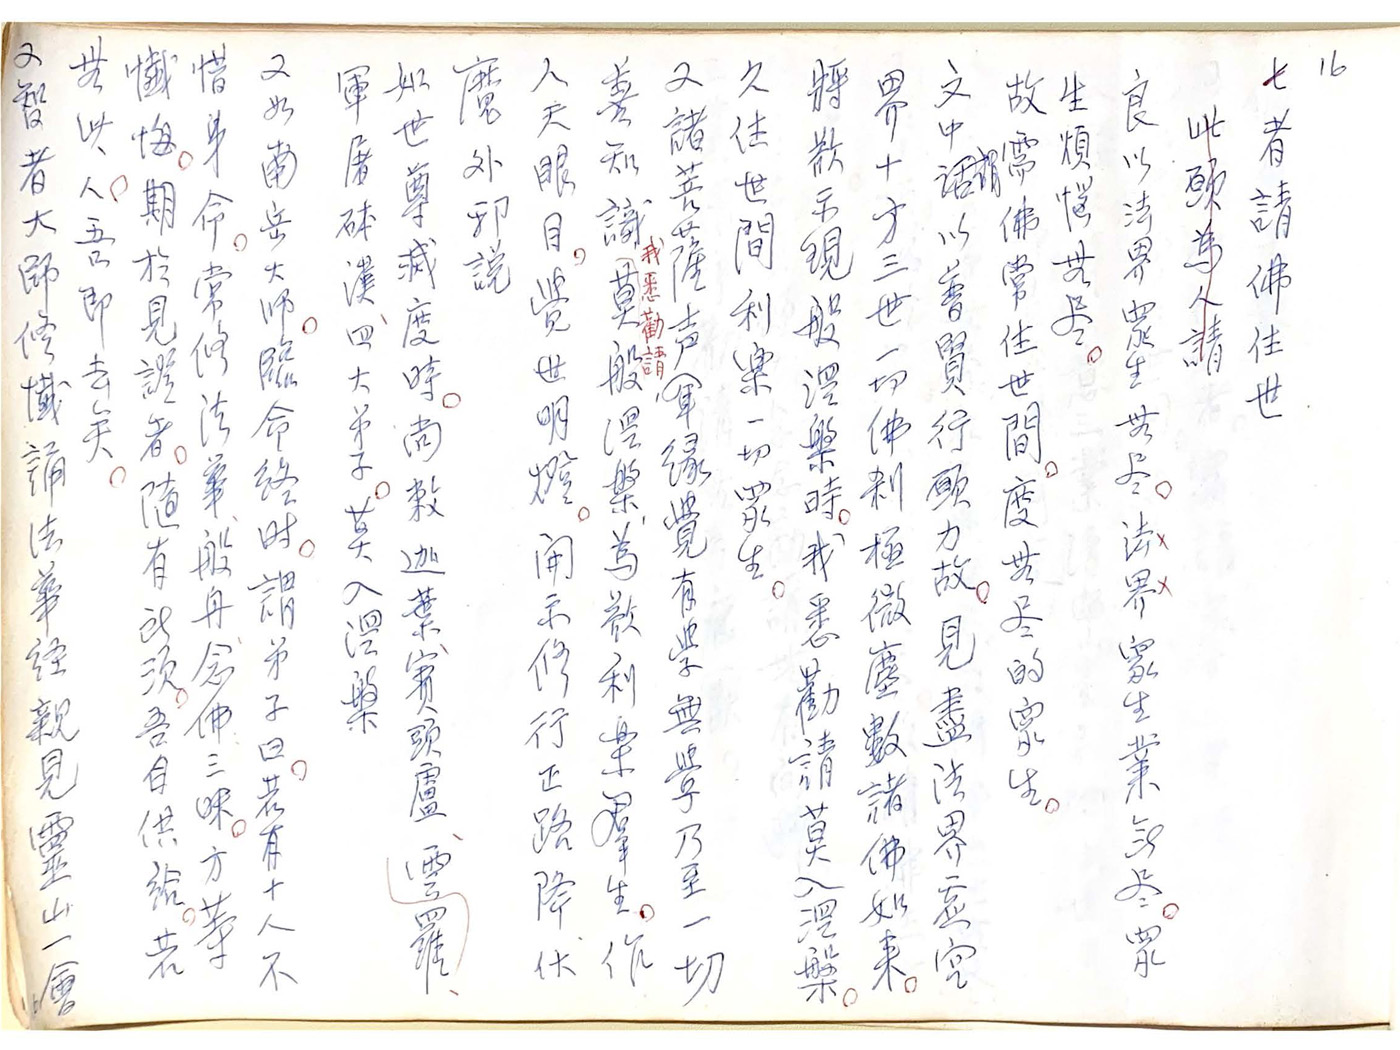 16
七者請佛住世
此願為人請
良以法界眾生無尽。法界眾生業無尽。眾
生煩惱無尽。
故需佛常住世間。度無尽的眾生。
文中謂以普賢行願力故。見盡法界虛空
界十方三世一切佛剎極微塵數諸佛如來。
將欲示現般涅槃時。我悉勸請莫入涅槃。
久住世間利樂一切眾生。
又諸菩薩声軍緣覺有学無學乃至一切
善知識我悉勸請莫般涅槃為欲利楽羣生。作
人天眼目。覺世明燈。開示修行正路降伏
魔外邪説
如世尊滅度時。尚敕迦葉、賓頭盧、雲羅、
軍屠砵漢四大弟子。莫入涅槃
又如南岳大师。臨命終时。謂弟子曰。若有十人不
惜身命。常修法華、般舟、念佛三昧。方等
懺悔。期於見證者。隨有所須。吾自供給。若
無此人。吾即去矣。
又智者大師修懺誦法華経親見靈山一會